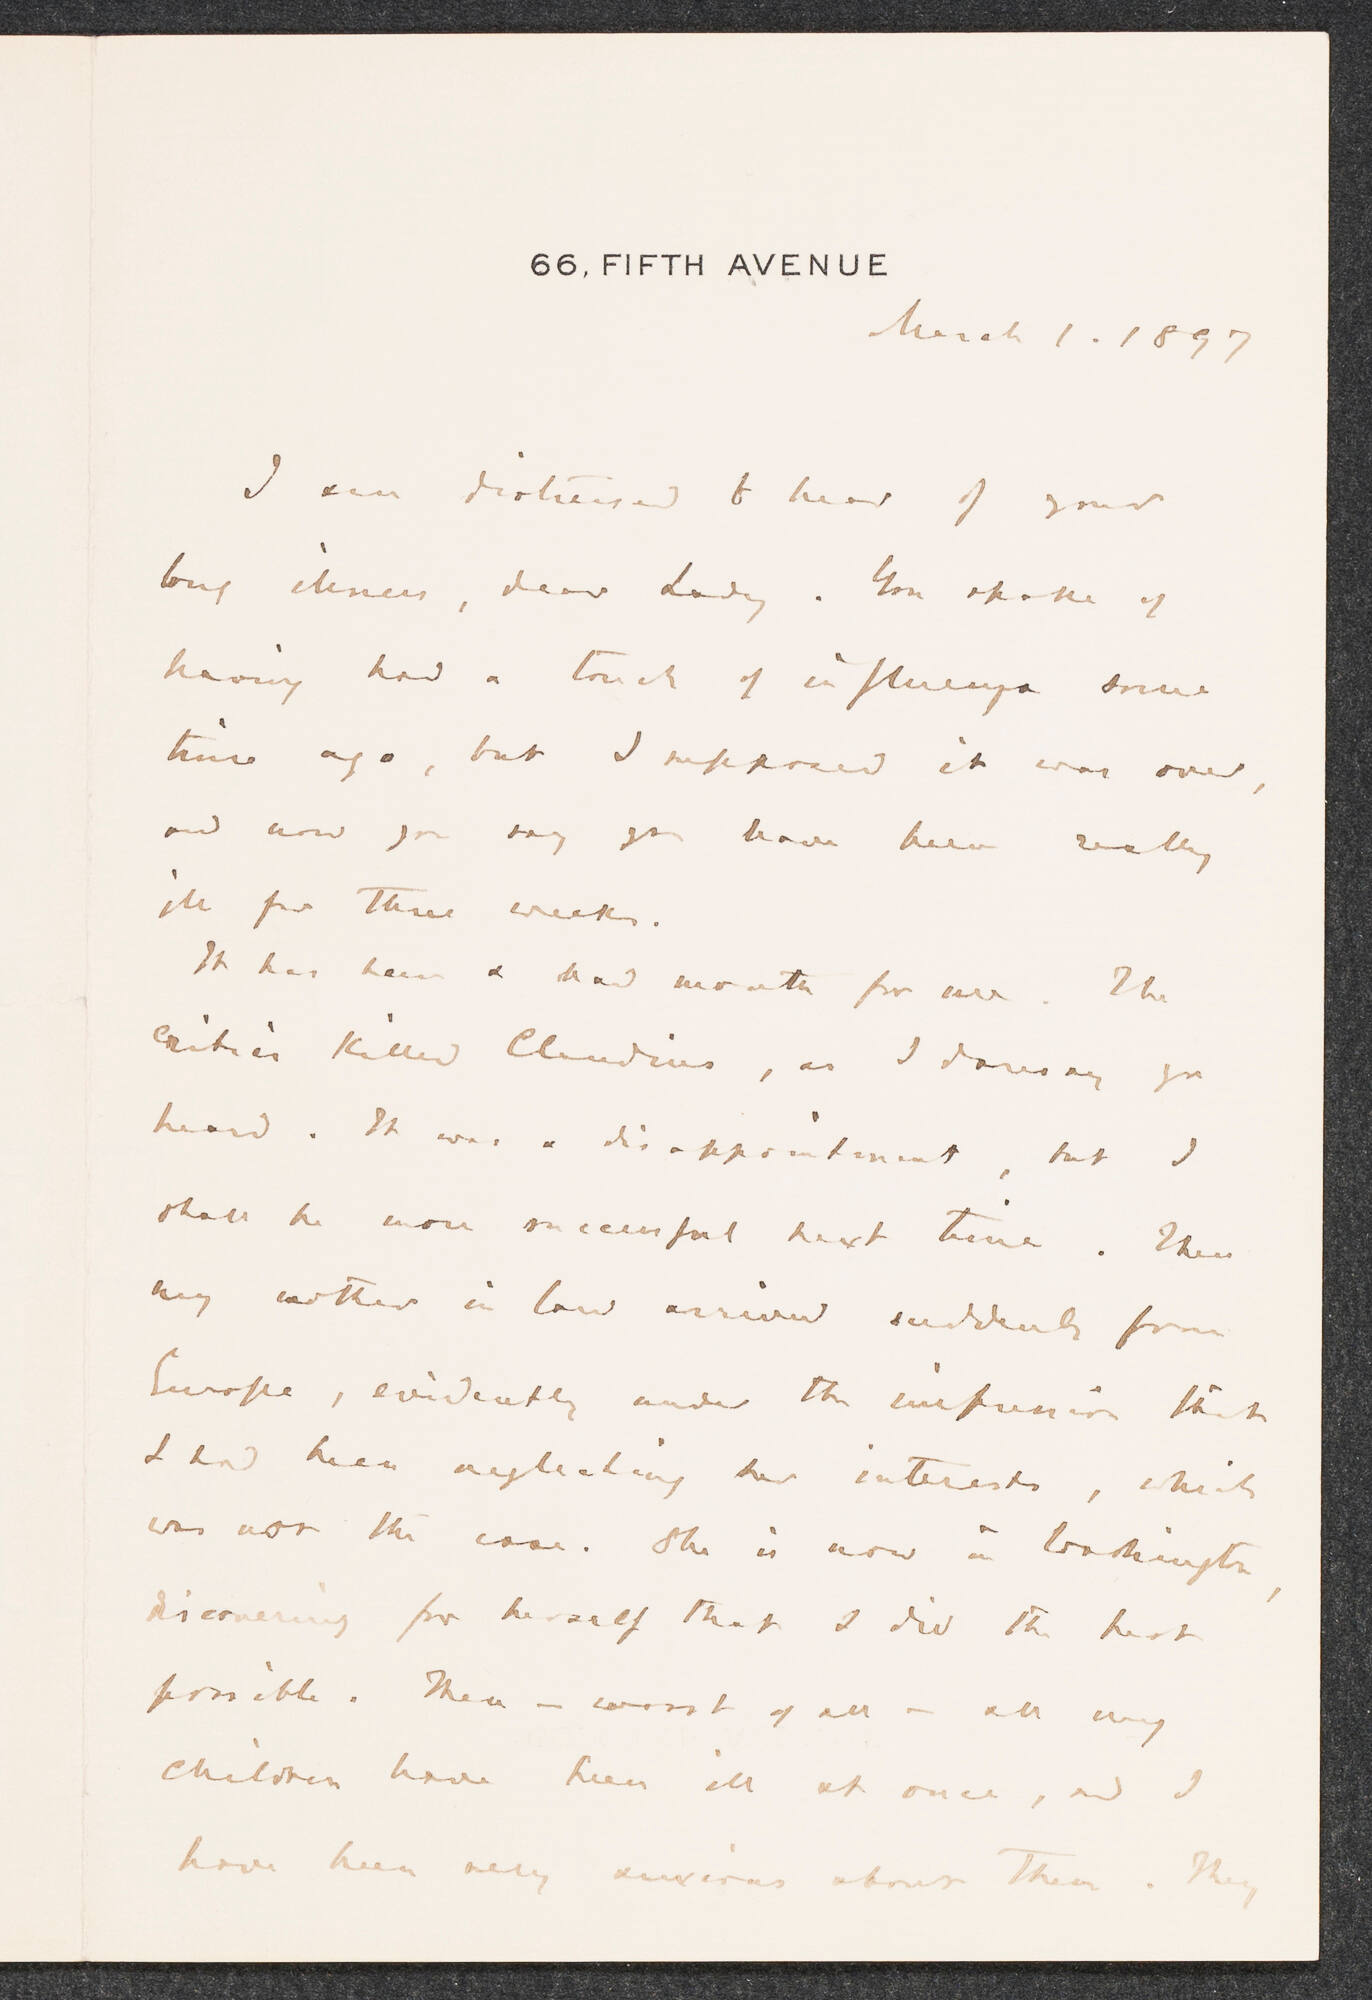 66, FIFTH AVENUE
March 1. 1897
I am distressed to hear of your
long illness, dear Lady. You spoke of
having had a touch of influenza some
time ago, but I supposed it was over,
and now you say you have been really
ill for three weeks.
It has been a bad month for me. The
Critics killed Claudius, as I daresay you
heard. It was a disappointment, but I
shall be more successful next time. Then
my mother in law arrived suddenly from
Europe, evidently under the impression that
I had been neglecting her interests, which
was not the case. She is now in Washington,
discovering for herself that I did the best
possible. Then – worst of all – all my
children have been ill at once, and I
have been very anxious about them. They